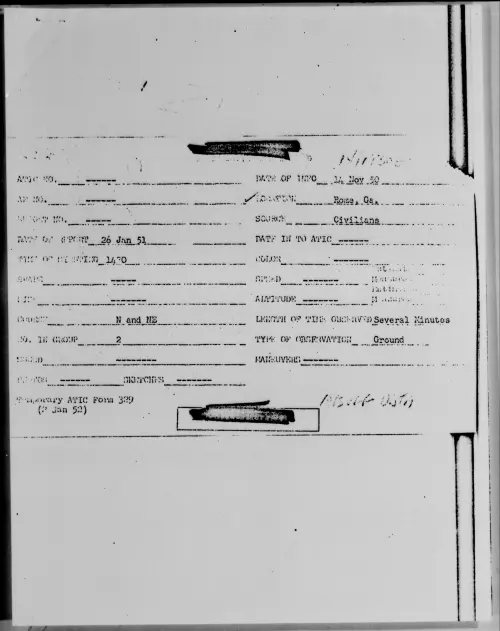 ATIC NO. ----- DATE OF INFO 14 Nov 50
AF NO. ----- LOCATION Rome, Ga.
REPORT NO. ----- SOURCE Civilians
DATE OF REPORT 26 Jan 51 DATE IN TO ATIC ------
TIME OF SIGHTING 1430 COLOR ------
SHAPE ----- SPEED -------
SIZE ------- ALTITUDE -------
COURSE N and NE LENGTH OF TIME OBSERVED Several Minutes
NO. IN GROUP 2 TYPE OF OBSERVATION Ground
SOUND ------- MANEUVERS -------
PHOTOS ------ SKETCHES -------
Temporary ATIC Form 329
(2 Jan 52)